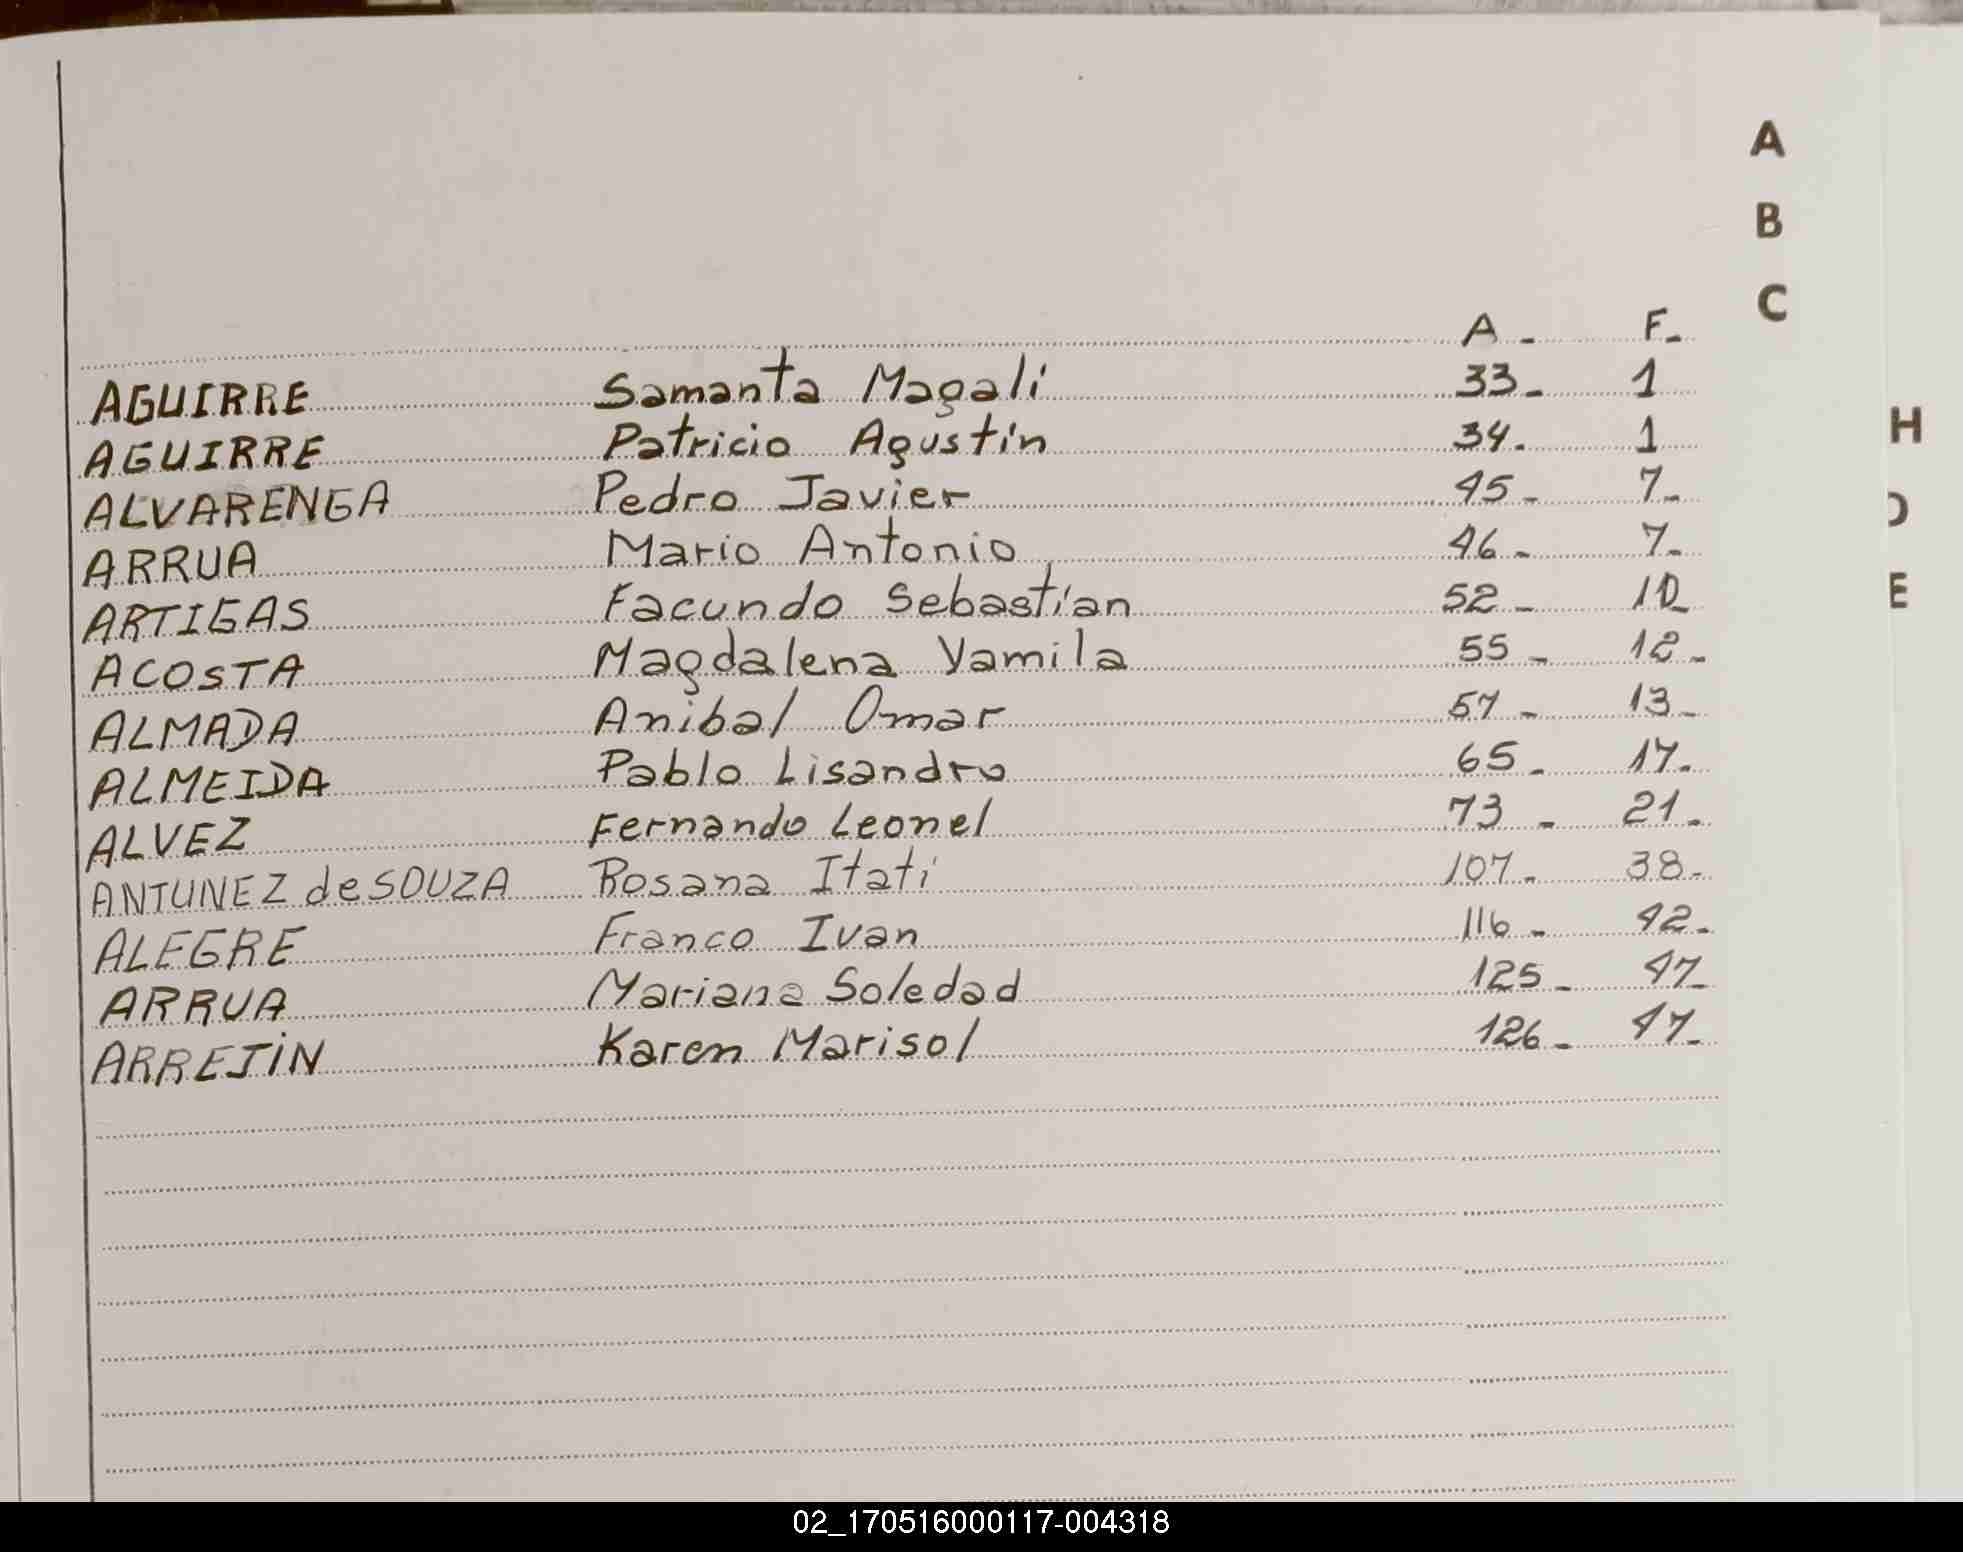 A
B
C
A - F-
AGUIRRE Samanta Magali 33- 1
AGUIRRE Patricio Agustín 34. 1
ALVARENGA Pedro Javier 45- 7-
ARRUA Mario Antonio 46- 7-
ARTIGAS Facundo Sebastían 52- 10
ACOSTA Magdalena Yamila 55- 12-
ALMADA Anibal Omar 57- 13-
ALMEIDA Pablo Lisandro 65- 17-
ALVEZ Fernando Leonel 73- 21-
ANTUNEZ de SOUZA Rosana Itatí 107- 38-
ALEGRE Franco Ivan 116- 42-
ARRUA Mariana Soledad 125- 47-
ARREJIN Karen Marisol 126- 47-
H
D
E
02_170516000117-004318